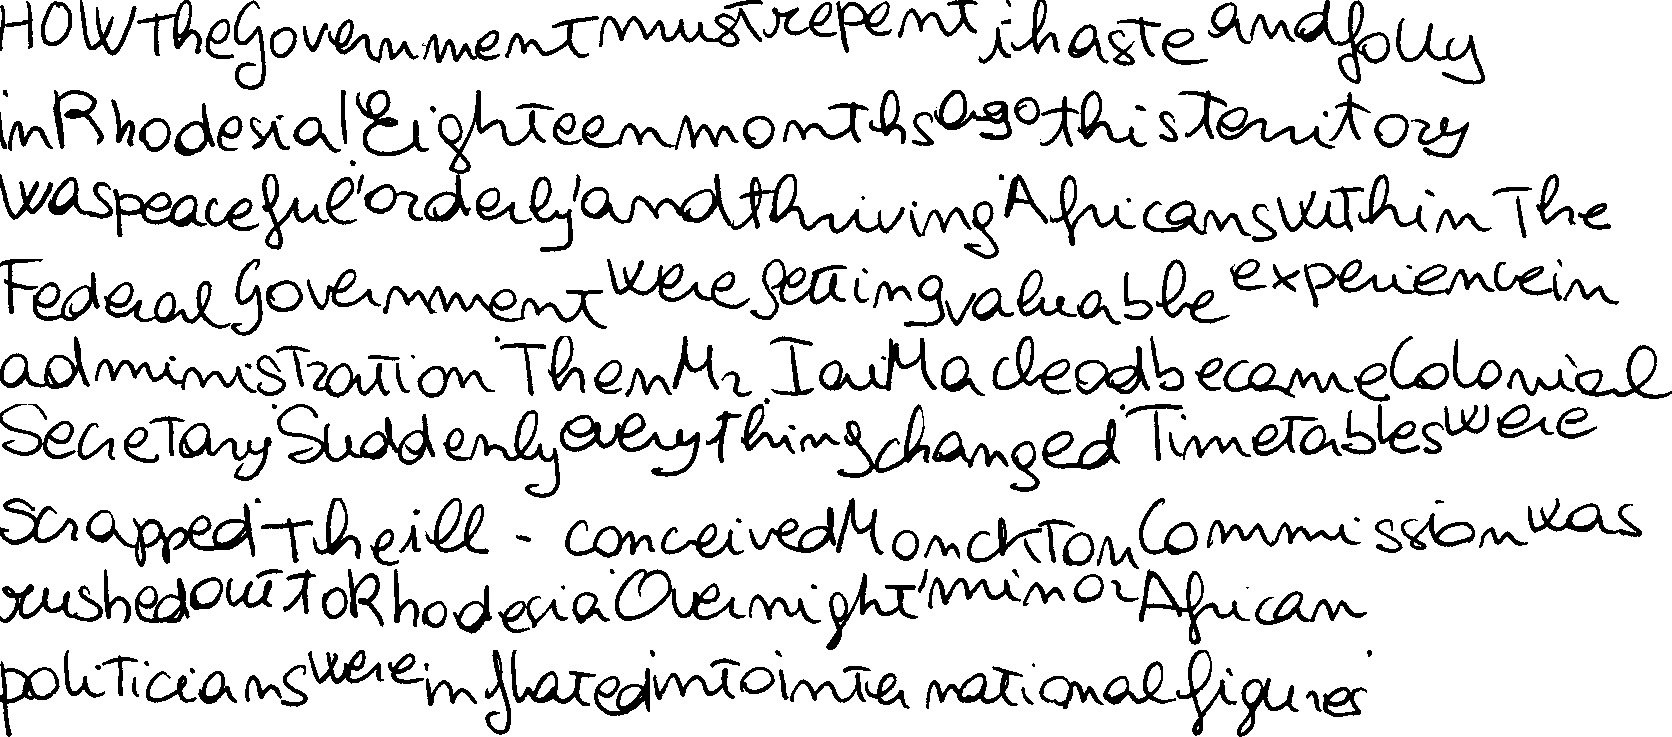 HOW the Government must repent i haste and folly
in Rhodesia! Eighteen months ago this territory
was peaceful, orderly, and thriving. Africans within the
Federal Government were getting valuable experience in
administration. Then Mr. Iain Macleod became Colonial
Secretary. Suddenly everything changed. Timetables were
scrapped. The ill-conceived Monckton Commission was
rushed out to Rhodesia. Overnight, minor African
politicians were inflated into international figures.